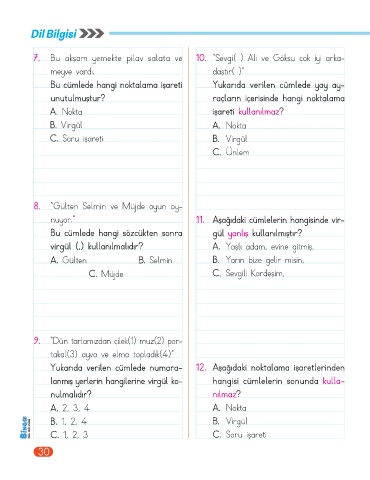 Dil Bilgisi
7. Bu akşam yemekte pilav salata ve
meyve vardı.
Bu cümlede hangi noktalama işareti
unutulmuştur?
A. Nokta
B. Virgül
C. Soru işareti
8. "Gülten Selmin ve Müjde oyun oy-
nuyor."
Bu cümlede hangi sözcükten sonra
virgül (,) kullanılmalıdır?
A. Gülten
B. Selmin
C. Müjde
9. "Dün tarlamızdan çilek(1) muz(2) por-
takal(3) ayva ve elma topladık(4)"
Yukarıda verilen cümlede numara-
lanmış yerlerin hangilerine virgül ko-
nulmalıdır?
A. 2, 3, 4
B. 1, 2, 4
C. 1, 2, 3
10. "Sevgi( ) Ali ve Göksu çok iyi arka-
daştır( )"
Yukarıda verilen cümlede yay ay-
raçların içerisinde hangi noktalama
işareti kullanılmaz?
A. Nokta
B. Virgül
C. Ünlem
11. Aşağıdaki cümlelerin hangisinde vir-
gül yanlış kullanılmıştır?
A. Yaşlı adam, evine gitmiş.
B. Yarın bize gelir misin,
C. Sevgili Kardeşim,
12. Aşağıdaki noktalama işaretlerinden
hangisi cümlelerin sonunda kulla-
nılmaz?
A. Nokta
B. Virgül
C. Soru işareti
BİNGO
30